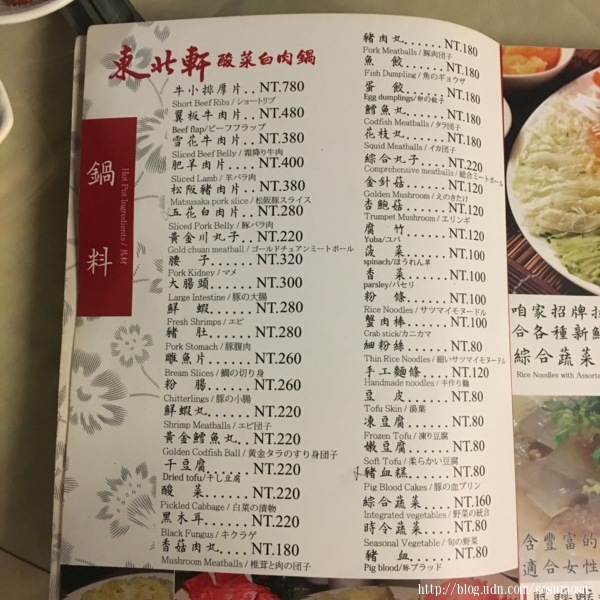 東北軒 酸菜白肉鍋
鍋料
Hot Pot Ingredients / 具材
牛小排厚片..NT.780
Short Beef Ribs / ショートリブ
翼板牛肉片..NT.480
Beef flap/ビーフフラップ
雪花牛肉片..NT.380
Sliced Beef Belly / 霜降り牛肉
肥羊肉片...NT.400
Sliced Lamb / 羊バラ肉
松阪豬肉片..NT.380
Matsusaka pork slice / 松阪豚スライス
五花白肉片..NT.280
Sliced Pork Belly / 豚バラ肉
黃金川丸子..NT.220
Gold chuan meatball / ゴールドチュアンミートボール
腰 子.....NT.320
Pork Kidney / マメ
大腸頭.....NT.300
Large Intestine / 豚の大腸
鮮 蝦.....NT.280
Fresh Shrimps / エビ
豬 肚.....NT.280
Pork Stomach / 豚腹肉
鵰魚片.....NT.260
Bream Slices / 鯛の切り身
粉 腸.....NT.260
Chitterlings / 豚の小腸
鮮蝦丸.....NT.220
Shrimp Meatballs / エビ団子
黃金鱈魚丸..NT.220
Golden Codfish Ball / 黃金タラのすり身団子
干豆腐.....NT.220
Dried tofu/干し豆腐
酸 菜.....NT.220
Pickled Cabbage / 白菜の漬物
黑木耳.....NT.220
Black Fungus / キクラゲ
香菇肉丸...NT.180
Mushroom Meatballs / 椎茸と肉の団子
豬肉丸......NT.180
Pork Meatballs / 豚肉団子
魚 餃......NT.180
Fish Dumpling / 魚のギョウザ
蛋 餃......NT.180
Egg dumplings/卵の餃子
鱈魚丸......NT.180
Codfish Meatballs / タラ団子
花枝丸......NT.180
Squid Meatballs / イカ団子
綜合丸子....NT.220
Comprehensive meatballs / 総合ミートボール
金針菇......NT.120
Golden Mushroom / えのきたけ
杏鮑菇......NT.120
Trumpet Mushroom / エリンギ
腐 竹......NT.120
Yuba/ユバ
菠 菜......NT.100
spinach/ほうれん草
香 菜......NT.100
parsley/パセリ
粉 條......NT.100
Rice Noodles / サツマイモヌードル
蟹肉棒......NT.100
Crab stick/カニカマ
細粉絲......NT.80
Thin Rice Noodles / 細いサツマイモヌードル
手工麵條....NT.120
Handmade noodles / 手作り麺
豆 皮......NT.80
Tofu Skin / 湯葉
凍豆腐......NT.80
Frozen Tofu / 凍り豆腐
嫩豆腐......NT.80
Soft Tofu / 柔らかい豆腐
豬血糕......NT.80
Pig Blood Cakes / 豚の血プリン
綜合蔬菜....NT.160
Integrated vegetables / 野菜の統合
時令蔬菜....NT.80
Seasonal Vegetable / 旬の野菜
豬 血......NT.80
Pig blood/豚ブラッド
咱家招牌
合各種新鮮
綜合蔬菜
Rice Noodles with Assorte
含豐富的
適合女性
http://blog.udn.com/